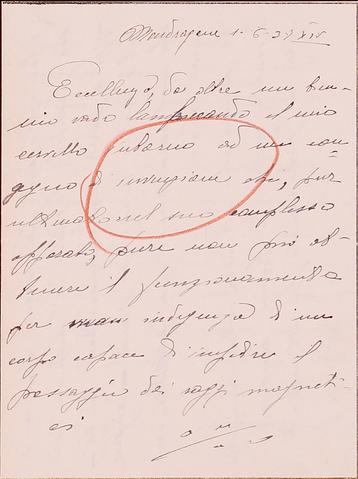 Mondragone 1-6-37 XIV
Eccellenza, da oltre un bien-
nio vado lambiccando il mio
cervello intorno ad un con-
gegno di invenzione che, pur
ultimato nel suo complesso
apparato, pure non può ot-
tenere il funzionamento
per indigenza di un
corpo capace di impedire il
passaggio dei raggi magneti-
ci